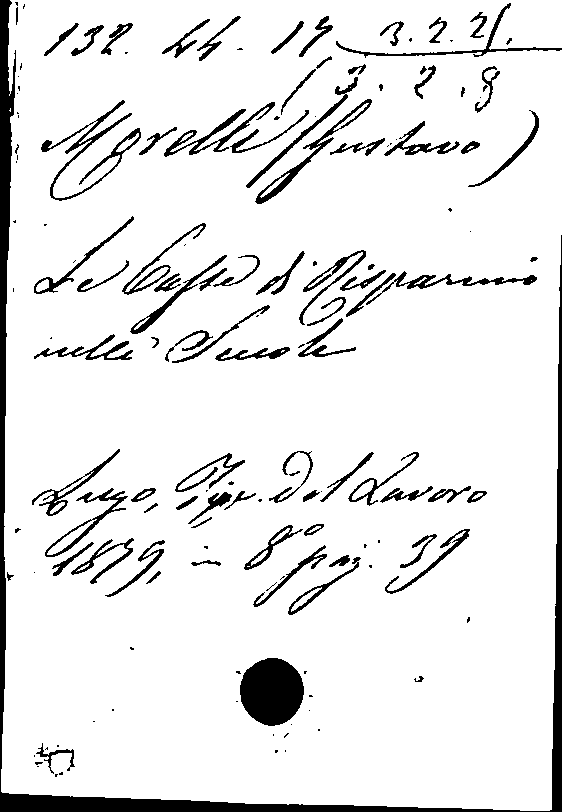 132. 44. 17 3. 2. 21.
(3. 2. 8
Morelli (Gustavo)
Le Casse di Risparmio
nelle Scuole
Lugo, Tip. del Lavoro
1879, in 8° pag. 39